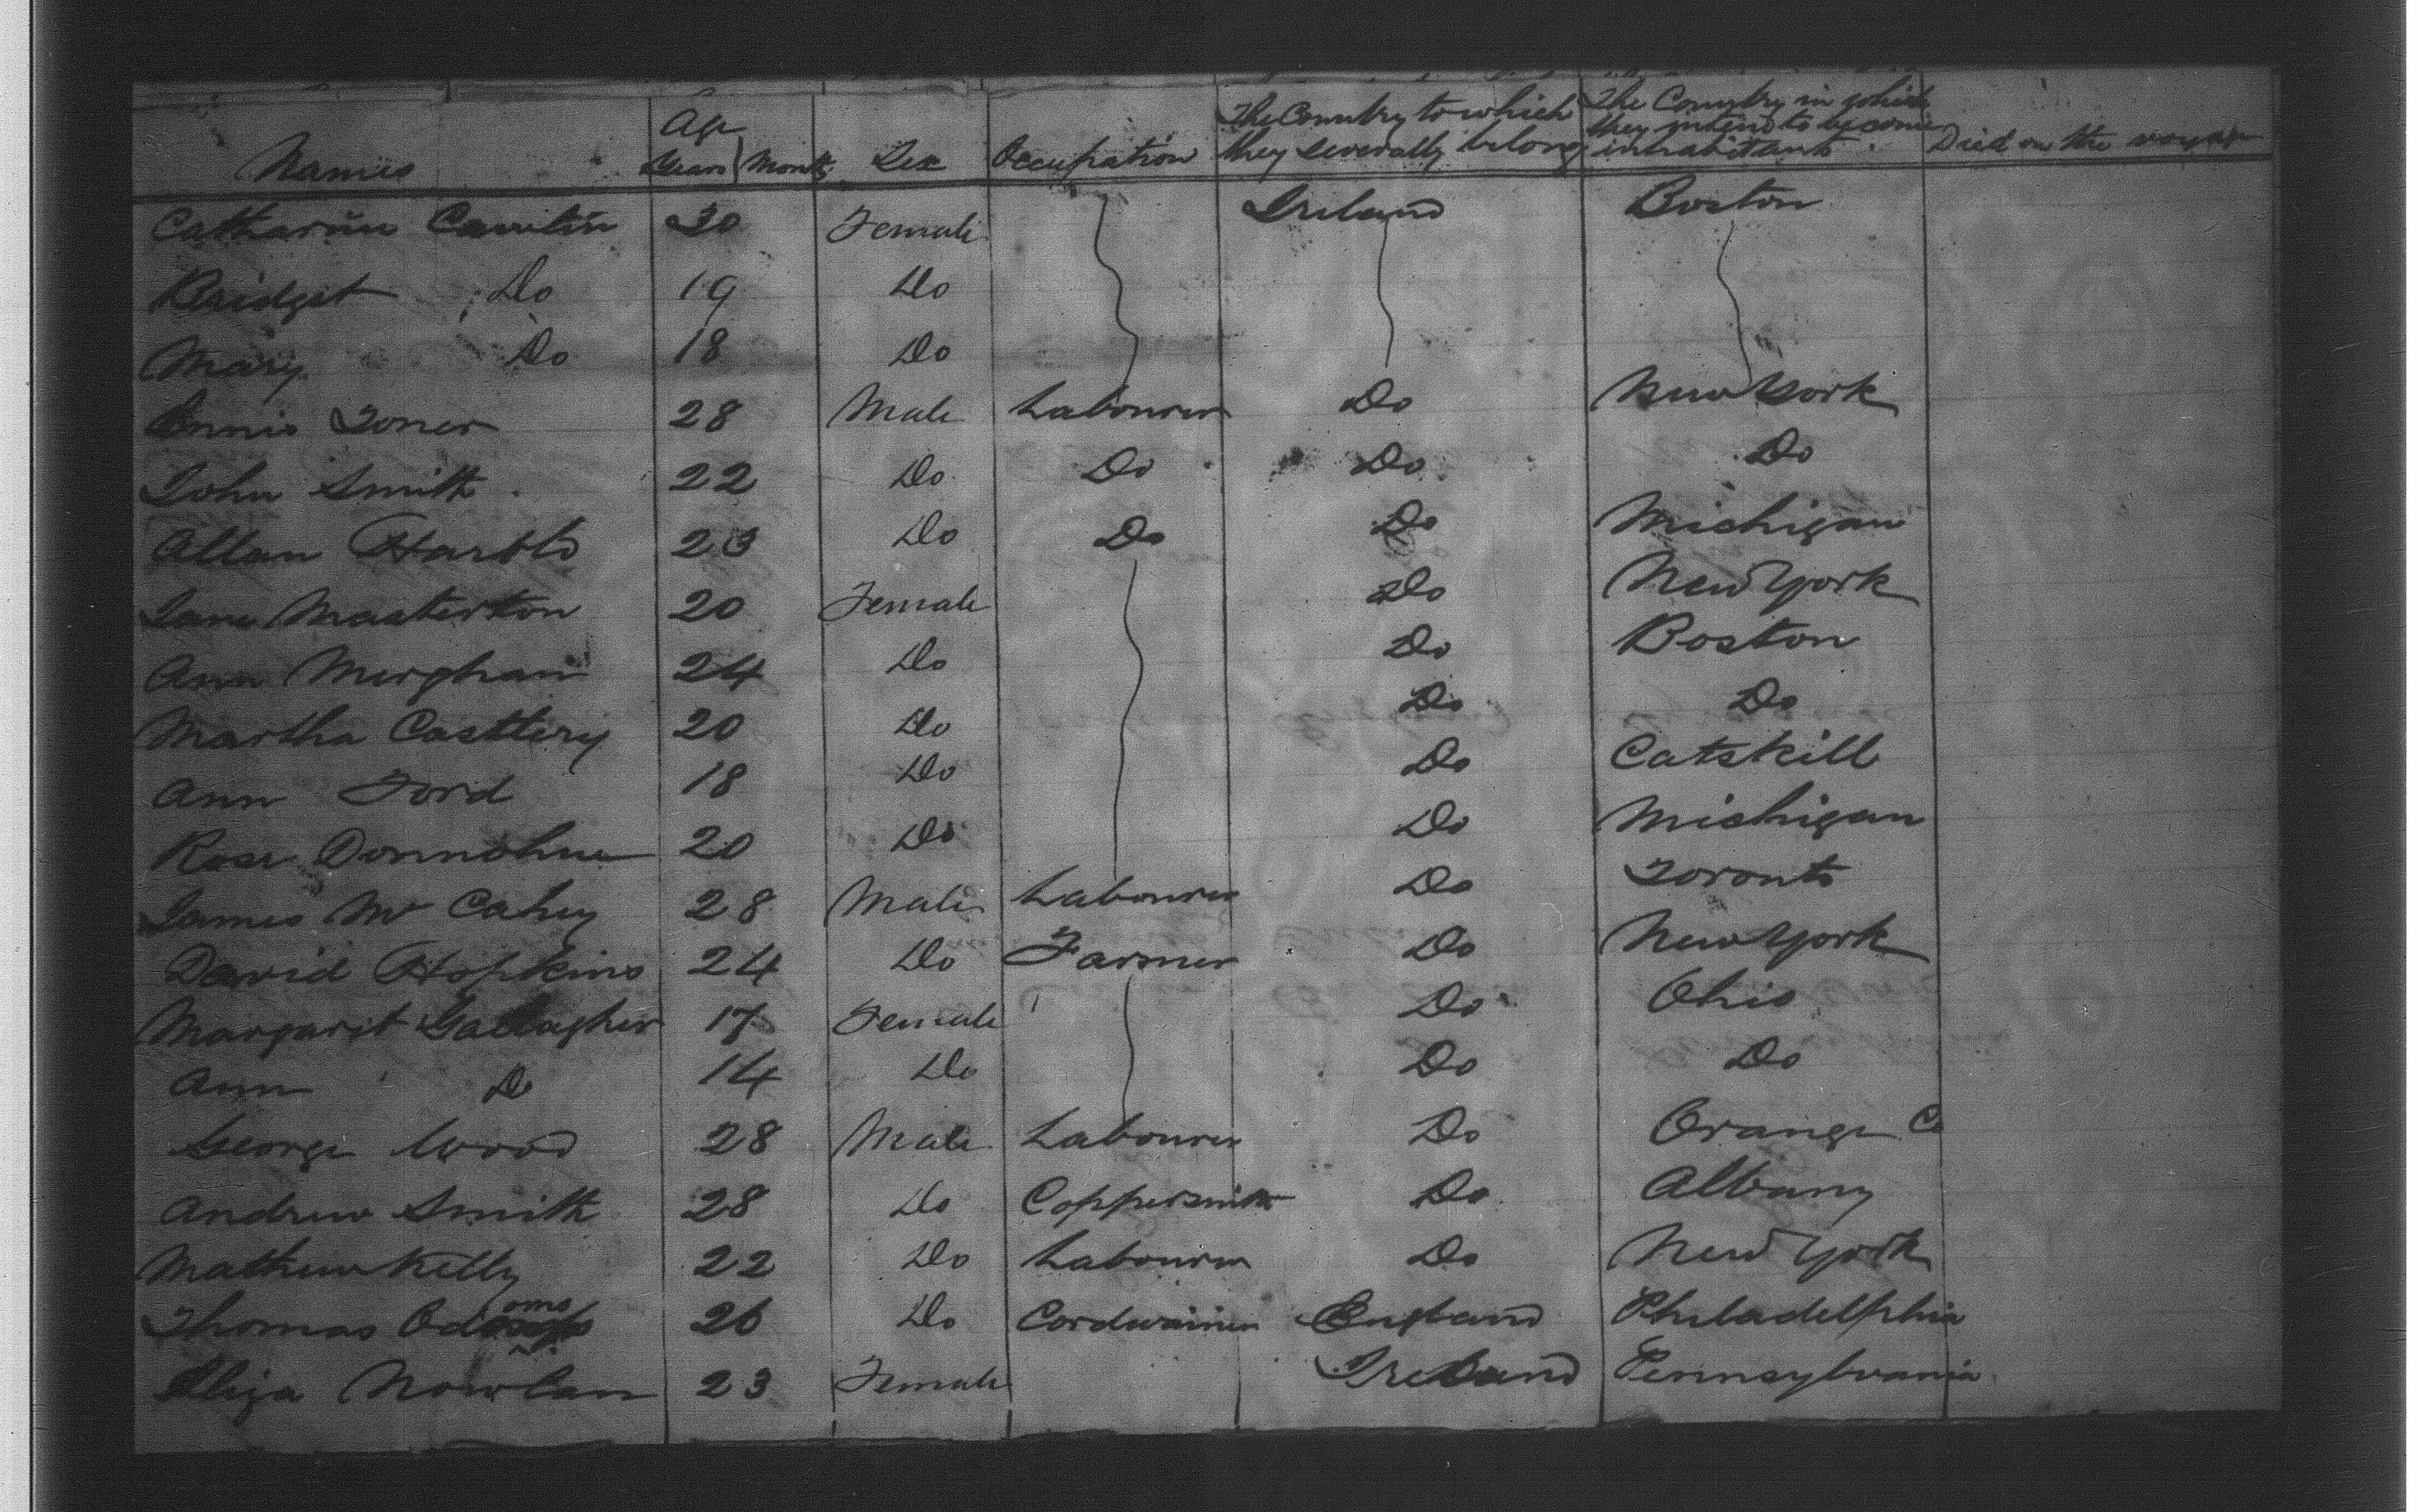 Names Age Years Months Sex Occupation The Country to which they severally belong The Country in which they intend to become inhabitants Died on the voyage
Catharine 30 Female Ireland Boston
Bridget Do 19 Do
Mary Do 18 Do
Ennis Toner 28 Male Labourer Do New York
John Smith 22 Do Do Do Do
Allan 23 Do Do Do Michigan
Jane Masterton 20 Female Do New York
Ann Merghan 24 Do Do Boston
Martha 20 Do Do Do
Ann Ford 18 Do Do Catskill
Rose Donnohue 20 Do Do Michigan
James Mc Cahey 28 Male Labourer Do Toronto
David Hopkins 24 Do Farmer Do New York
Margaret Gallagher 17 Female Do Ohio
Ann Do 14 Do Do Do
George Wood 28 Male Labourer Do Orange Co
Andrew Smith 28 Do Coppersmith Do Albany
Mathew Kelly 22 Do Labourer Do New York
Thomas 26 Do Cordwainer England Philadelphia
Eliza Nowlan 23 Female Ireland Pennsylvania